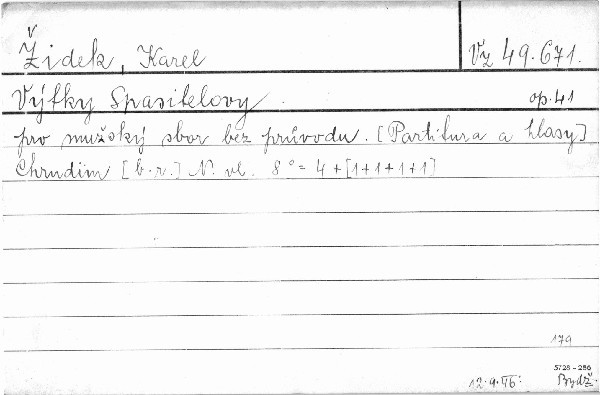 Židek, Karel
Vz 49.671.
Výtky Spasitelovy.
op. 41
pro mužský sbor bez průvodu. [Partitura a hlasy]
Chrudim [b.r.] N. vl. 8° = 4 + [1+1+1+1]
179
5728 - 286
12.9.
Brdž.